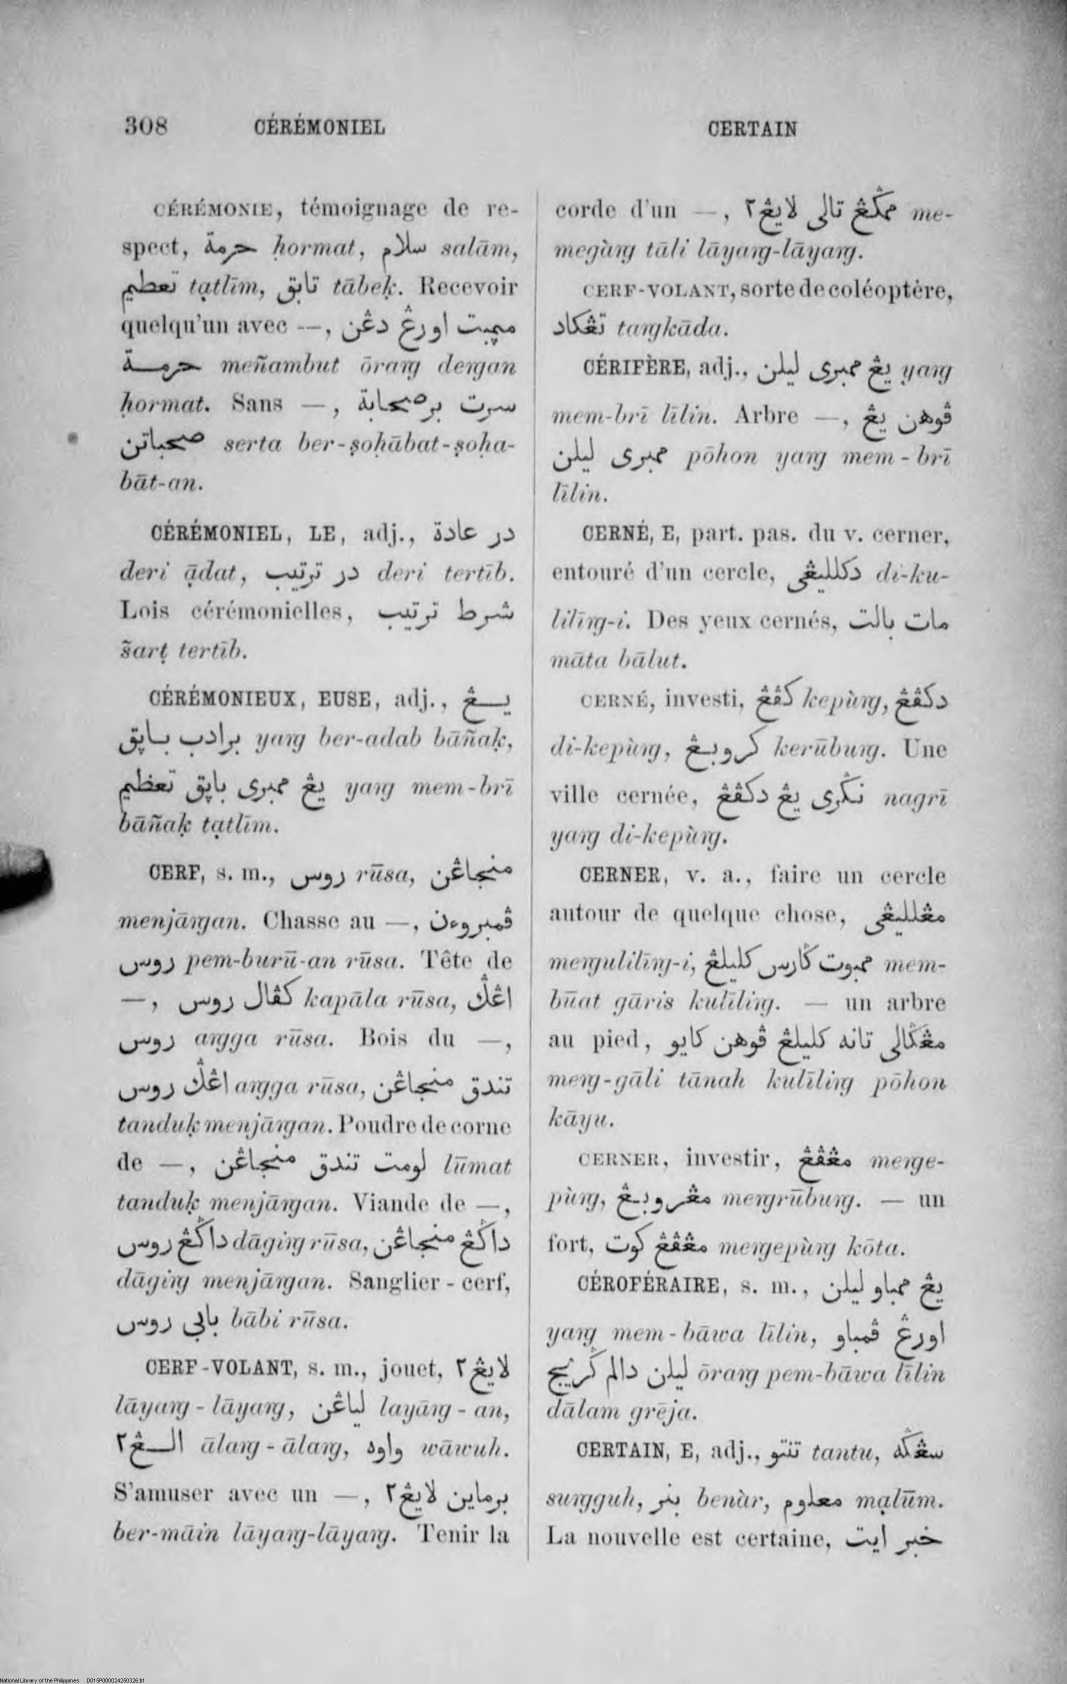 308 CÉRÉMONIEL CERTAIN
CÉRÉMONIE, témoignage de re-
spect, حرمة ḥormat, سلام salām,
تعظيم tạtlīm, تابق tābeḳ. Recevoir
quelqu'un avec —, مڽمبت اورڠ دڠن
حرمة meñambut ōraŋ deŋgan
ḥormat. Sans —, سرت برصحابة
صحباتن serta ber-ṣoḥābat-ṣoḥa-
bāt-an.
CÉRÉMONIEL, LE, adj., در عادة
deri ạ̄dat, در ترتيب deri tertīb.
Lois cérémonielles, شرط ترتيب
s̃arṭ tertīb.
CÉRÉMONIEUX, EUSE, adj., يڠ
برادب باڽق yaŋ ber-adab bāñaḳ,
يڠ ممبرى باڽق تعظيم yaŋ mem-brī
bāñaḳ tạtlīm.
CERF, s. m., روس rūsa, منجاڠن
menjāŋgan. Chasse au —, ڤمبروءن
روس pem-burū-an rūsa. Tête de
—, كڤال روس kapāla rūsa, اڠݢ
روس aŋgga rūsa. Bois du —,
اڠݢ روس aŋgga rūsa, تندق منجاڠن
tanduḳ menjāŋgan. Poudre de corne
de —, لومت تندق منجاڠن lūmat
tanduḳ menjāŋgan. Viande de —,
داݢڠ روس dāgiŋ rūsa, داݢڠ منجاڠن
dāgiŋ menjāŋgan. Sanglier-cerf,
بابى روس bābi rūsa.
CERF-VOLANT, s. m., jouet, لايڠ٢
lāyaŋ-lāyaŋ, لياڠن layāŋ-an,
الڠ٢ ālaŋ-ālaŋ, واوه wāwuh.
S'amuser avec un —, برماين لايڠ٢
ber-māin lāyaŋ-lāyaŋ. Tenir la
corde d'un —, ممݢڠ تالى لايڠ٢ me-
megàŋ tāli lāyaŋ-lāyaŋ.
CERF-VOLANT, sorte de coléoptère,
تڠكاد taŋkāda.
CÉRIFÈRE, adj., يڠ ممبرى ليلن yaŋ
mem-brī līlin. Arbre —, ڤوهن يڠ
ممبرى ليلن pōhon yaŋ mem-brī
līlin.
CERNÉ, E, part. pas. du v. cerner,
entouré d'un cercle, دكلليڠى di-ku-
lilīŋ-i. Des yeux cernés, مات بالت
māta bālut.
CERNÉ, investi, كڤڠ kepùŋ, دكڤڠ
di-kepùŋ, كروبڠ kerūbuŋ. Une
ville cernée, نݢرى يڠ دكڤڠ nagrī
yaŋ di-kepùŋ.
CERNER, v. a., faire un cercle
autour de quelque chose, مڠلليڠى
meŋgulilīŋ-i, ممبوت ݢارس كليلڠ mem-
būat gāris kulīliŋ. — un arbre
au pied, مڠݢالى تانه كليلڠ ڤوهن كايو
meŋ-gāli tānah kulīliŋ pōhon
kāyu.
CERNER, investir, مڠڤڠ meŋge-
pùŋ, مڠروبڠ meŋgrūbuŋ. — un
fort, مڠڤڠ كوت meŋgepùŋ kōta.
CÉROFÉRAIRE, s. m., يڠ ممباو ليلن
yaŋ mem-bāwa līlin, اورڠ ڤمباو
ليلن دالم ݢريج ōraŋ pem-bāwa līlin
dālam grēja.
CERTAIN, E, adj., تنتو tantu, سڠݢه
suŋgguh, بنر benàr, معلوم mạlūm.
La nouvelle est certaine, خبر ايت
National Library of the Philippines